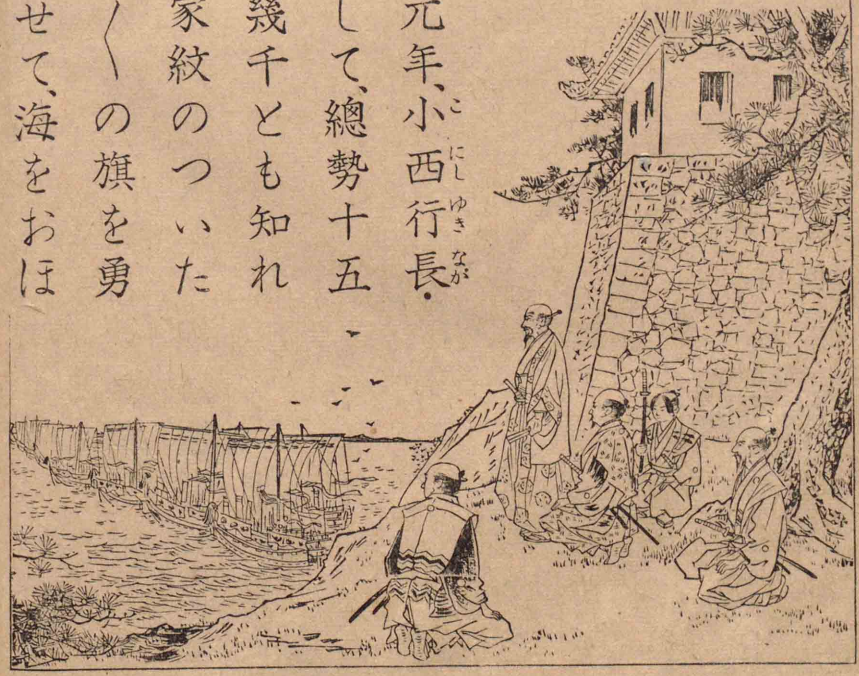 元年、小西行長・
こにしゆきなが
して、總勢十五
幾千とも知れ
家紋のついた
〱の旗を勇
せて、海をおほ